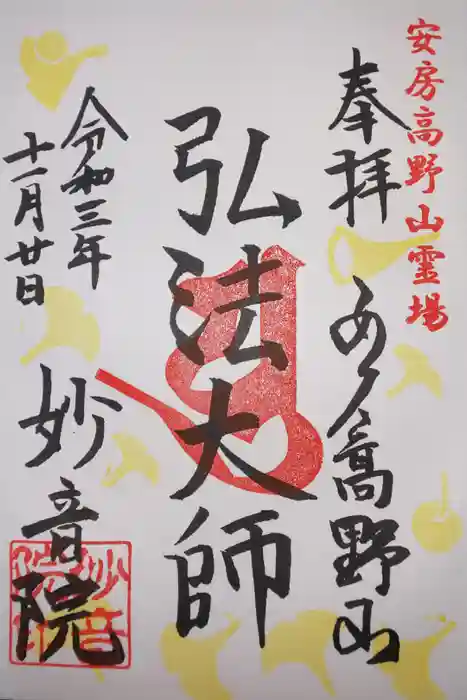 安房高野山霊場
奉拝 高野山
弘法大師
令和三年
十一月廿日
妙音院
妙音院印